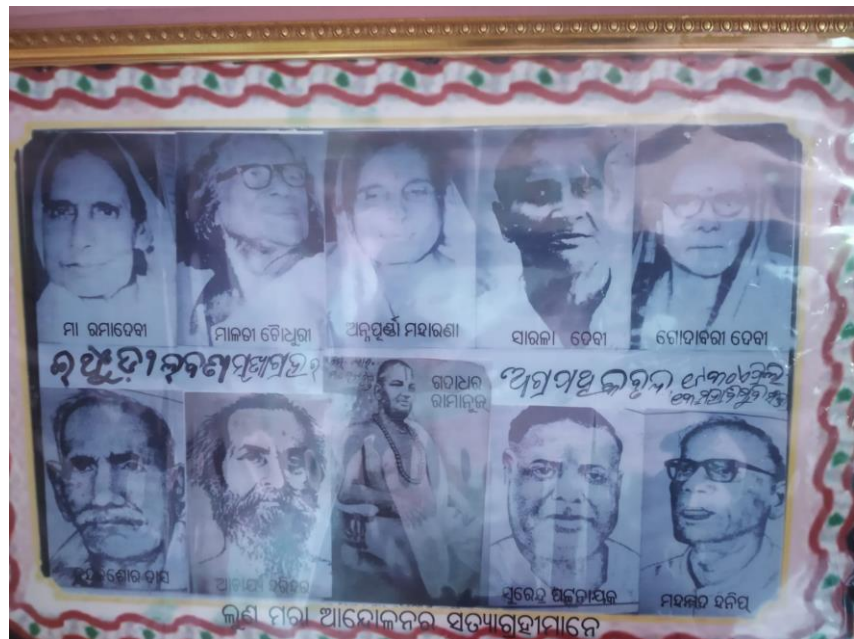 ମା ରମାଦେବୀ
ମାଳତୀ ଚୌଧୁରୀ
ଅନ୍ନପୂର୍ଣ୍ଣା ମହାରଣା
ସାରଳା ଦେବୀ
ଗୋଦାବରୀ ଦେବୀ
ଇଞ୍ଚୁଡ଼ୀ ଲବଣ ସତ୍ୟାଗ୍ରହର
ଗଦାଧର
ରାମାନୁଜ
ଦାସ
ଆଚାର୍ଯ୍ୟ ହରିହର
ସୁରେନ୍ଦ୍ର ପଟ୍ଟନାୟକ
ଲୁଣ ମରା ଆନ୍ଦୋଳନର ସତ୍ୟାଗ୍ରହୀମାନେ